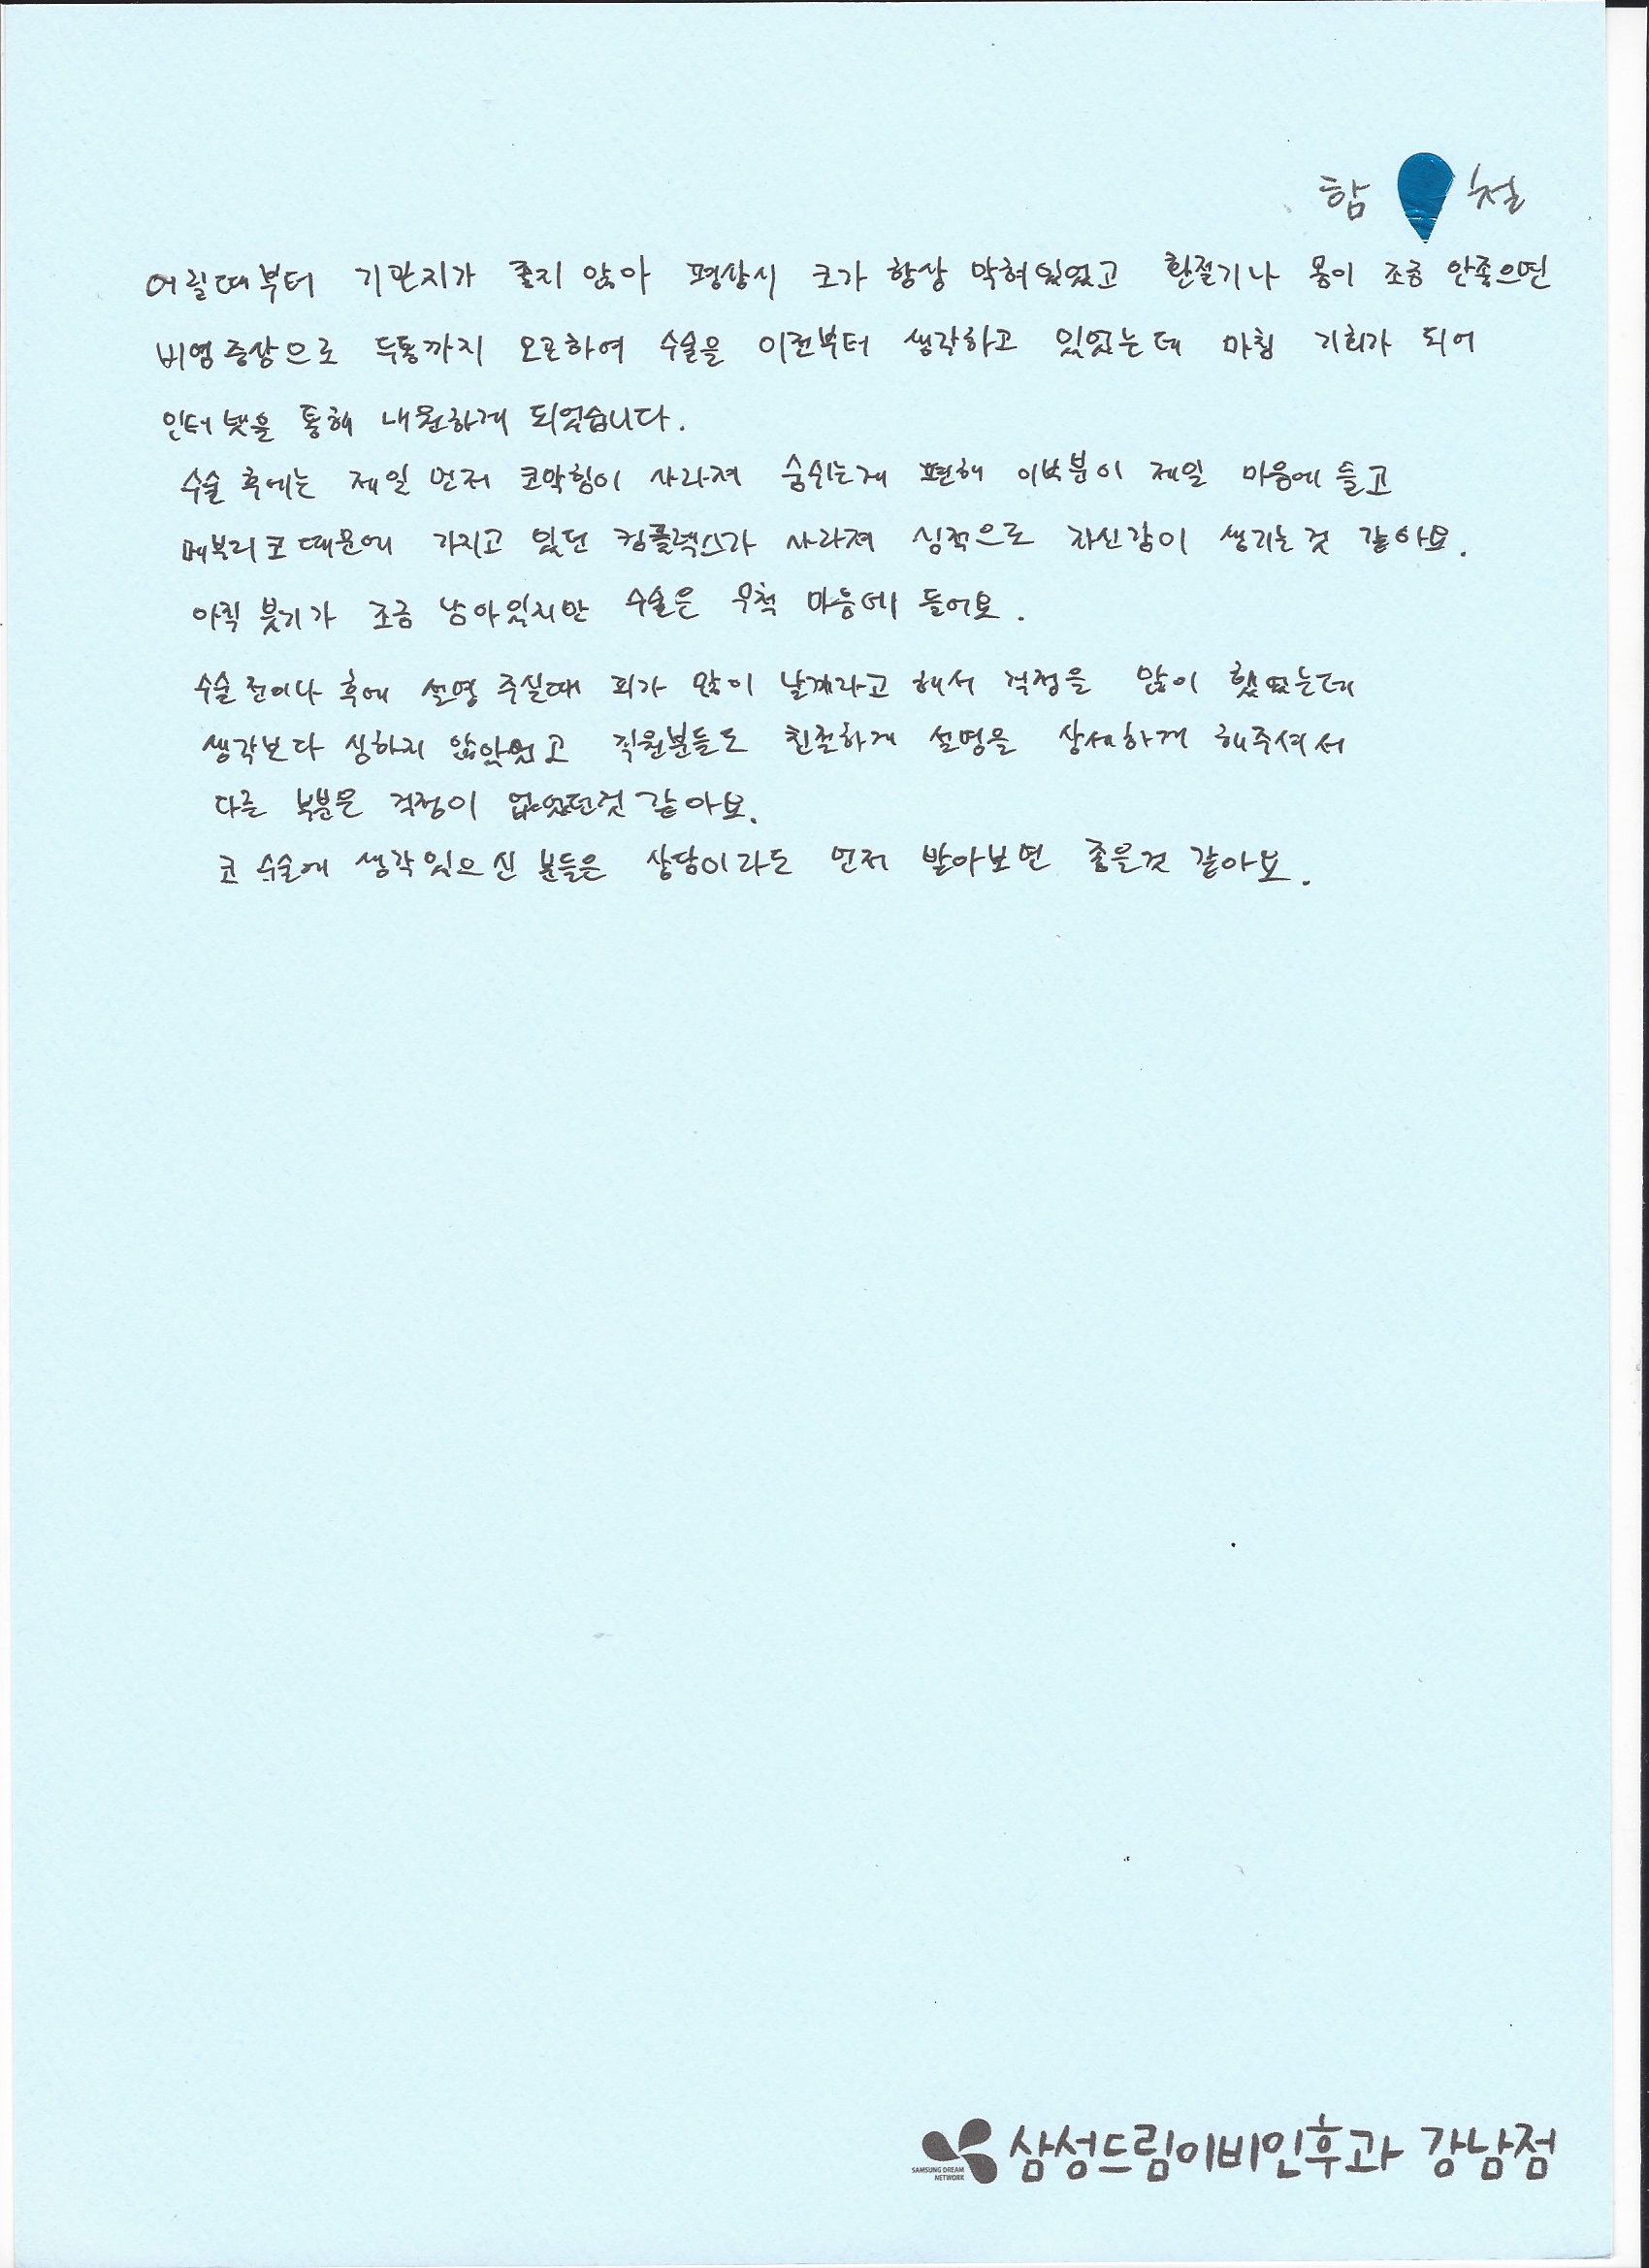 함 철
어릴때부터 기관지가 좋지 않아 평상시 코가 항상 막혀있었고 환절기나 몸이 조금 안좋으면
비염증상으로 두통까지 오곤하여 수술을 이전부터 생각하고 있었는데 마침 기회가 되어
인터넷을 통해 내원하게 되었습니다.
수술 후에는 제일 먼저 코막힘이 사라져 숨쉬는게 편해 이부분이 제일 마음에 들고
매부리코 때문에 가지고 있던 컴플렉스가 사라져 심적으로 자신감이 생기는 것 같아요.
아직 붓기가 조금 남아있지만 수술은 무척 마음에 들어요.
수술 전이나 후에 설명 주실때 피가 많이 날거라고 해서 걱정을 많이 했었는데
생각보다 심하지 않았었고 직원분들도 친절하게 설명을 상세하게 해주셔서
다른 부분은 걱정이 없었던것 같아요.
코 수술에 생각있으신 분들은 상담이라도 먼저 받아보면 좋을것 같아요.
SAMSUNG DREAM
NETWORK
삼성드림이비인후과 강남점